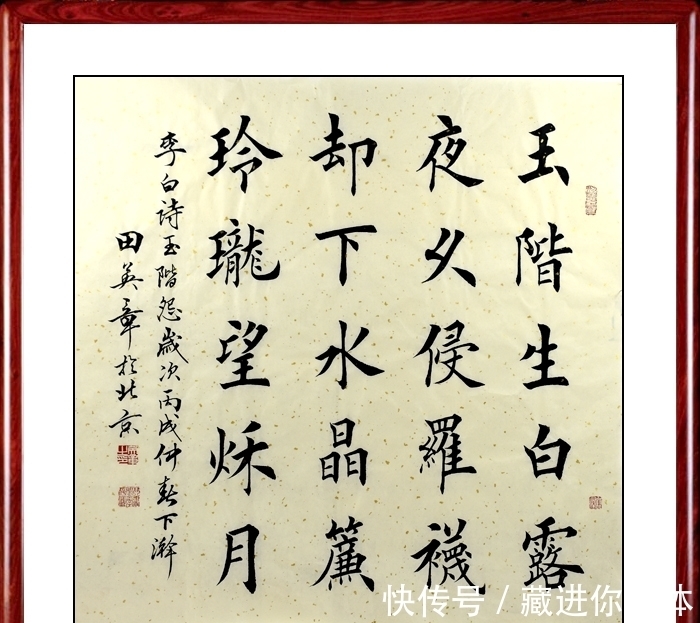 玉階生白露
夜久侵羅襪
却下水晶簾
玲瓏望秋月
李白詩玉階怨歲次丙戌仲春下澣
田英章於北京
快传号 / 藏进你 体